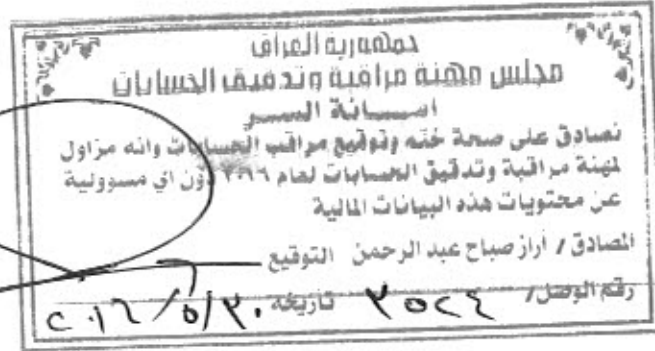 جمهورية العراق
مجلس مهنة مراقبة وتدقيق الحسابات
امـــانة الســـر
نصادق على صحة ختم وتوقيع مراقب الحسابات وانه مزاول
لمهنة مراقبة وتدقيق الحسابات لعام ٢٠١٦ دون اي مسوولية
عن محتويات هذه البيانات المالية
المصادق / أراز صباح عبد الرحمن التوقيع
رقم الوصل/ ٣٥٢٤ تاريخه ٢٠١٦/٥/٣٠